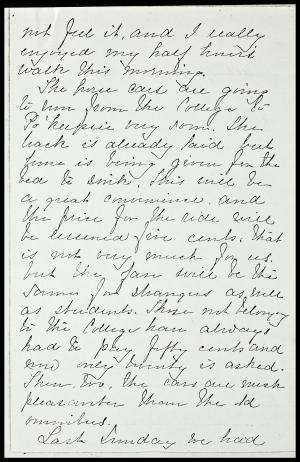 not feel it, and I really
enjoyed my half hour's
walk this morning.
The horse cars are going
to run from the College to
Po'keepsie very soon. The
track is already laid but
time is being given for the
bed to sink. This will be
a great convenience, and
the price for the ride will
be lessened five cents. That
is not very much for us.
but the fare will be the
same for strangers as well
as students. Those not belonging
to the College have always
had to pay fifty cents and
now only twenty is asked.
Then, too, the cars are much
pleasanter than the old
omnibus.
Last Sunday we had